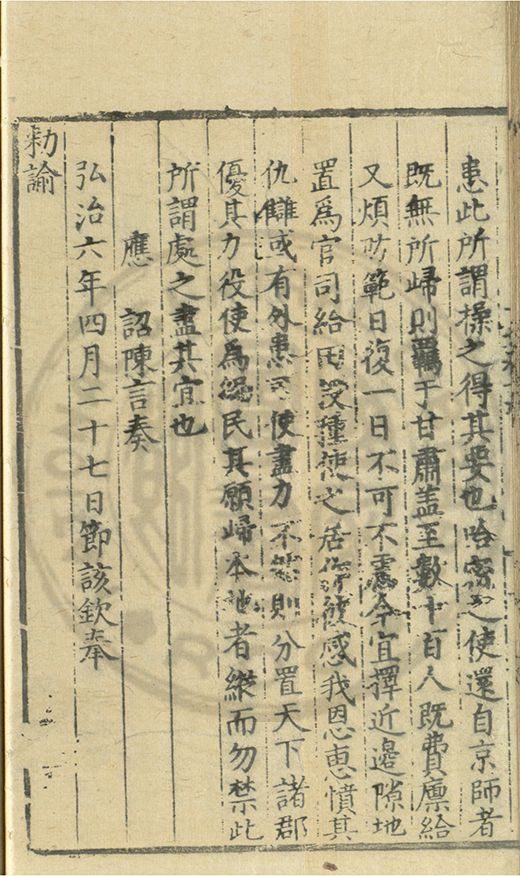 患此所謂操之得其要也哈密之使還自京師者
既無所歸則羈于甘肅盖至數十百人既費廪給
又煩防範日復一日不可不慮今宜擇近邊隙地
置爲官司給田沒種使之居彼感我恩惠憤其
仇讎或有外患可使盡力不然則分置天下諸郡
優其力役使爲編民其願歸本地者縱而勿禁此
所謂處之盡其宜也
應 詔陳言奏
弘治六年四月二十七日節該欽奉
勑諭